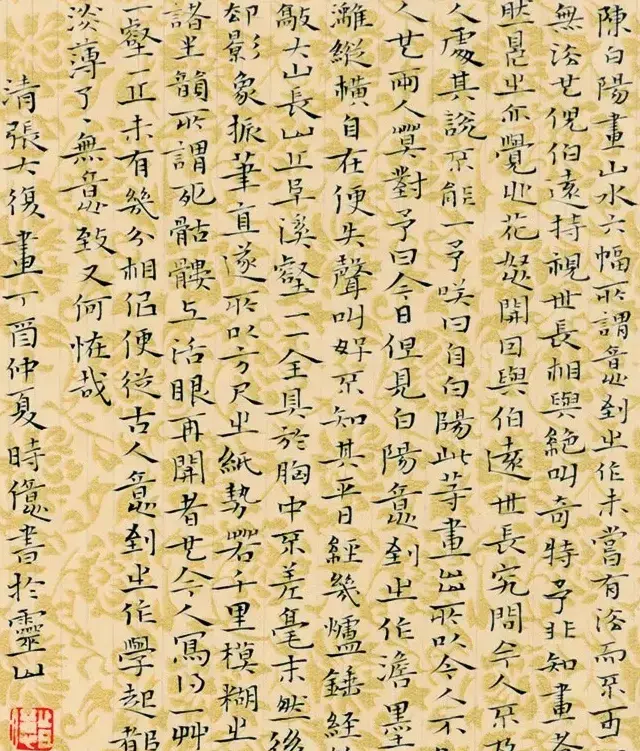 陳白陽畫山水六幅所謂意到之作未嘗有法而不可
無法也倪伯遠持視世長相與絕叫奇特予非知畫者
然見之亦覺心花怒開因與伯遠世長究問今人不及
人處其說不能一予咲曰自白陽此等畫出所以今人不
人也兩人冥對予曰今日但見白陽意到之作澹墨
灕縱橫自在便失聲叫好不知其平日經幾爐錘經
敲大山長山丘阜溪壑一一全具於胸中不差毫末然後
却影象振筆直遂所以方尺之紙勢若千里模糊之
諸生韻所謂死骷髏上活眼再開者也今人寫得一艸
一壑一丘未有幾分相似便從古人意到之作學起都
淡薄了了無意致又何怪哉
清張大復畫丁酉仲夏時億書於靈山